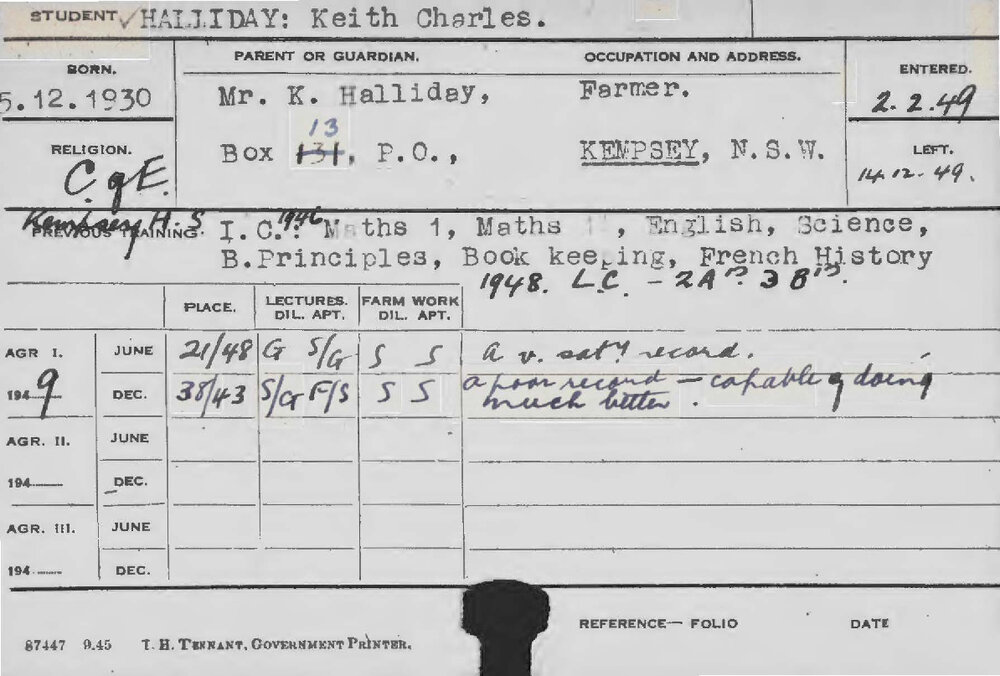 STUDENT ✓ HALLIDAY: Keith Charles.
BORN.
5.12.1930
PARENT OR GUARDIAN.
Mr. K. Halliday,
13
Box 131, P.O.,
OCCUPATION AND ADDRESS.
Farmer.
KEMPSEY, N.S.W.
ENTERED.
2.2.49
RELIGION.
C of E.
LEFT.
14.12.49.
Kempsey H.S.
PREVIOUS TRAINING. I.C.: 1946 Maths 1, Maths , English, Science,
B.Principles, Book keeping, French History
1948. L.C. - 2A's 3 B's.
PLACE. LECTURES. DIL. APT. FARM WORK DIL. APT.
AGR I. JUNE 21/48 G S/G S S a v. saty record.
1949 DEC. 38/43 S/G F/S S S a poor record — capable of doing
much better.
AGR. II. JUNE
194 DEC.
AGR. III. JUNE
194 DEC.
REFERENCE— FOLIO DATE
87447 9.45 T. H. TENNANT, GOVERNMENT PRINTER.